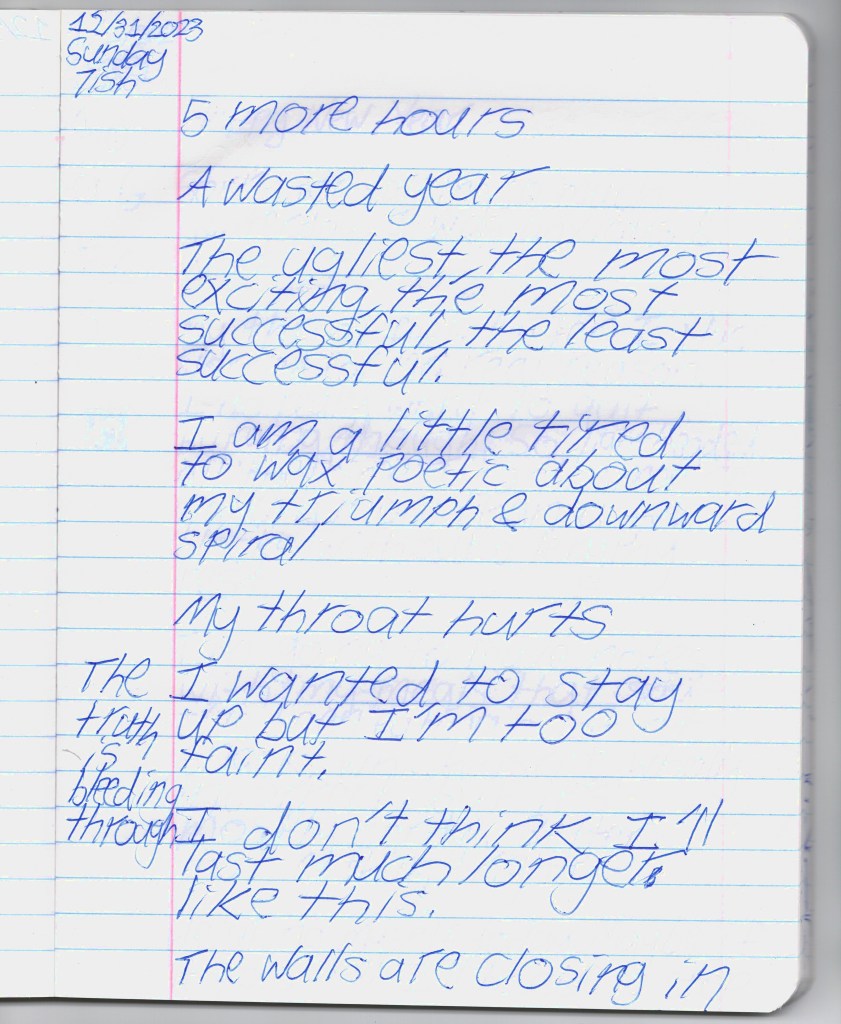 12/31/2023
Sunday
Tish
5 more hours
A wasted year
The ugliest, the most
exciting, the most
successful, the least
successful.
I am a little tired
to wax poetic about
my triumph & downward
spiral
My throat hurts
I wanted to stay
up but I'm too
faint.
The
truth
is
bleeding
through
I don't think I'll
last much longer
like this.
The walls are closing in